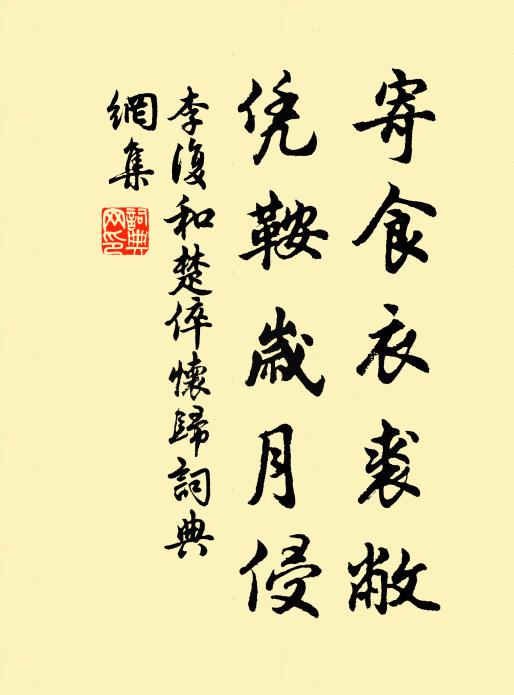 寄食衣裘敝
凭鞍歲月侵
李復和楚倅懷歸詞典
網集
詞典
网印